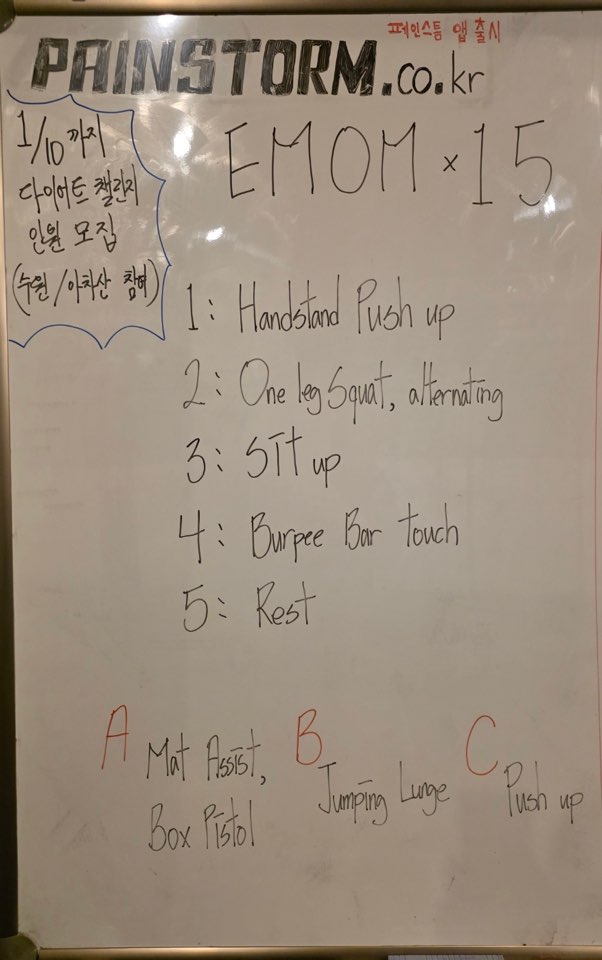 페인스톰 앱 출시
PAINSTORM.co.kr
1/10까지
다이어트 챌린지
인원 모집
(수원/아차산 참여)
EMOM × 15
1: Handstand Push up
2: One leg Squat, alternating
3: Sit up
4: Burpee Bar touch
5: Rest
A Mat Assist,
Box Pistol
B Jumping Lunge
C Push up